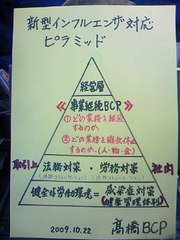 新型インフルエンザ対応
ピラミッド
経営層
《事業継続BCP》
①どの業務を継続
するのか
②どの業務を縮小休止
するのか、(人・物・金)
取引上 法務対策・労務対策 社内
健全な労働環境=感染症対策
(健康管理体制)
2009.10.22 髙橋BCP